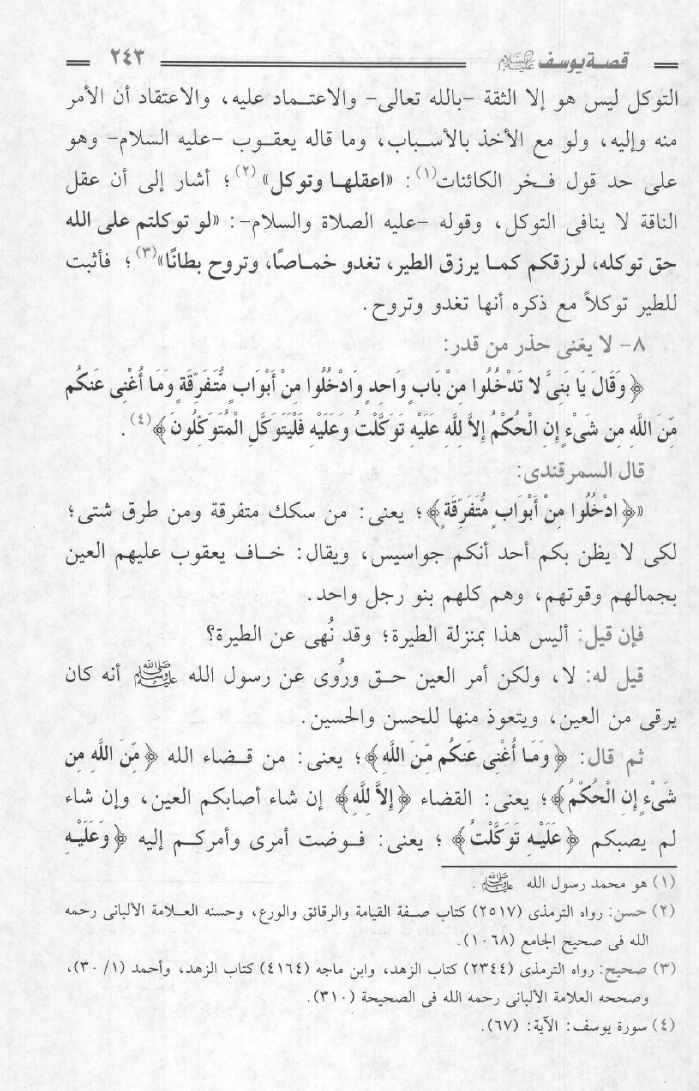 قصة يوسف عليه السلام
٢٤٣
التوكل ليس هو إلا الثقة -بالله تعالى- والاعتـماد عليه، والاعتقاد أن الأمر
منه وإليه، ولو مع الأخذ بالأسـباب، وما قاله يعقـوب -عليه السلام- وهو
على حد قول فـخر الكائنات(١): «اعقلهـا وتوكل»(٢)؛ أشار إلى أن عقل
الناقة لا ينافى التوكل، وقوله -عليه الصلاة والسلام-: «لو توكلتم على الله
حق توكله، لرزقكم كمـا يرزق الطير، تغدو خمـاصًا، وتروح بطانًا»(٣)؛ فأثبت
للطير توكلاً مع ذكره أنها تغدو وتروح.
٨- لا يغنى حذر من قدر:
﴿وَقَالَ يَا بَنِىَّ لا تَدْخُلُوا مِنْ بَابٍ وَاحِدٍ وَادْخُلُوا مِنْ أَبْوَابٍ مُّتَفَرِّقَةٍ وَمَا أُغْنِى عَنكُم
مِّنَ اللَّهِ مِن شَىْءٍ إِنِ الْحُكْمُ إِلاَّ لِلَّهِ عَلَيْهِ تَوَكَّلْتُ وَعَلَيْهِ فَلْيَتَوَكَّلِ الْمُتَوَكِّلُونَ﴾(٤).
قال السمرقندى:
«﴿ادْخُلُوا مِنْ أَبْوَابٍ مُّتَفَرِّقَةٍ﴾؛ يعنى: من سكك متفرقة ومن طرق شتى؛
لكى لا يظن بكم أحد أنكم جواسيس، ويقال: خـاف يعقوب عليهم العين
بجمالهم وقوتهم، وهم كلهم بنو رجل واحد.
فإن قيل: أليس هذا بمنزلة الطيرة؛ وقد نُهى عن الطيرة؟
قيل له: لا، ولكن أمر العين حـق ورُوى عن رسول الله ﷺ أنه كان
يرقى من العين، ويتعوذ منها للحسن والحسين.
ثم قال: ﴿وَمَا أُغْنِى عَنكُم مِّنَ اللَّهِ﴾؛ يعنى: من قـضاء الله ﴿مِّنَ اللَّهِ مِن
شَىْءٍ إِنِ الْحُكْمُ﴾؛ يعنى: القضاء ﴿إِلاَّ لِلَّهِ﴾ إن شاء أصابكم العين، وإن شاء
لم يصبكم ﴿عَلَيْهِ تَوَكَّلْتُ﴾؛ يعنى: فـوضت أمرى وأمركـم إليه ﴿وَعَلَيْهِ
(١) هو محمد رسول الله ﷺ.
(٢) حسن: رواه الترمذى (٢٥١٧) كتاب صـفة القيامة والرقائق والورع، وحسنه العـلامة الألبانى رحمه
الله فى صحيح الجامع (١٠٦٨).
(٣) صحيح: رواه الترمذى (٢٣٤٤) كتاب الزهد، وابن ماجه (٤١٦٤) كتاب الزهد، وأحمد (٣٠/١)،
وصححه العلامة الألبانى رحمه الله فى الصحيحة (٣١٠).
(٤) سورة يوسف: الآية: (٦٧).